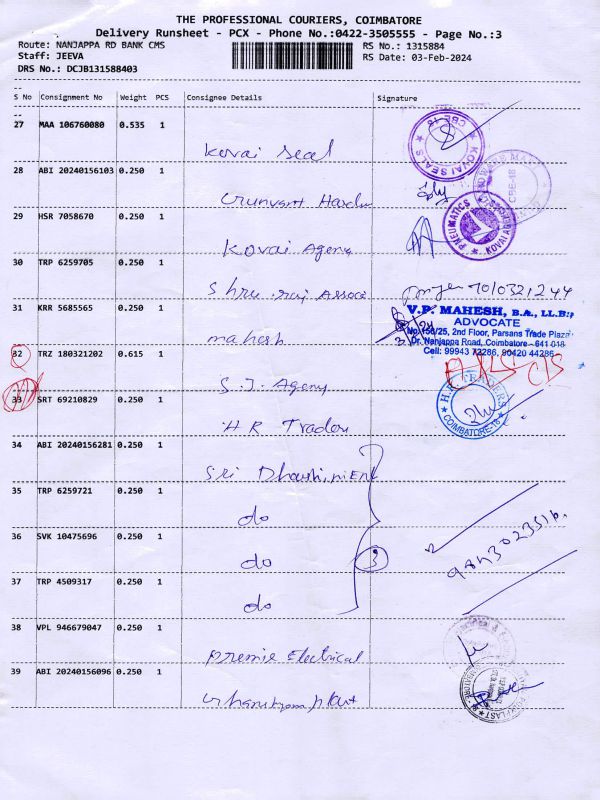 THE PROFESSIONAL COURIERS, COIMBATORE
Delivery Runsheet - PCX - Phone No.:0422-3505555 - Page No.:3
Route: NANJAPPA RD BANK CMS RS No.: 1315884
Staff: JEEVA RS Date: 03-Feb-2024
DRS No.: DCJB131588403
S No Consignment No Weight PCS Consignee Details Signature
27 MAA 106760080 0.535 1
Kovai Seal
KOVAI SEALS CBE-18
28 ABI 20240156103 0.250 1
CBE-18
29 HSR 7058670 0.250 1
Kovai Agency
PNEUMATICS
30 TRP 6259705 0.250 1
Shree raj Associ
31 KRR 5685565 0.250 1
mahesh
V.P. MAHESH, B.A., LL.B.,
ADVOCATE
No.156/25, 2nd Floor, Parsans Trade Plaza
Dr. Nanjappa Road, Coimbatore-641 018
Cell: 99943 72286, 90420 44286
32 TRZ 180321202 0.615 1
S.J. Agency
33 SRT 69210829 0.250 1
HR Traders
H.R. TRADERS COIMBATORE-18
34 ABI 20240156281 0.250 1
Sri
35 TRP 6259721 0.250 1
do
36 SVK 10475696 0.250 1
do 3 9843023516
37 TRP 4509317 0.250 1
do
38 VPL 946679047 0.250 1
Premie Electrical
39 ABI 20240156096 0.250 1